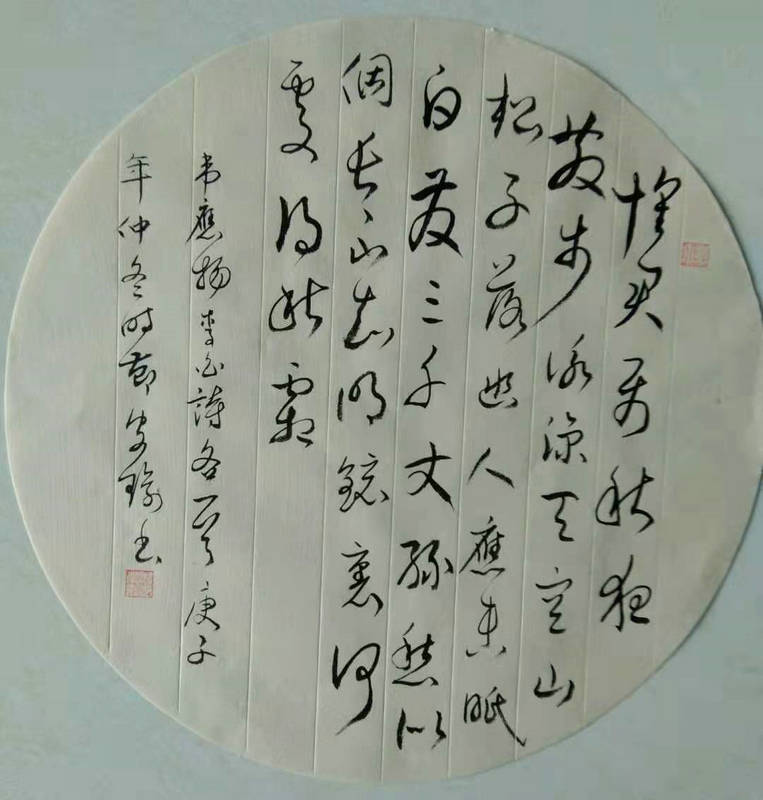 懷君屬秋夜
散步詠涼天空山
松子落幽人應未眠
白發三千丈緣愁似
個長不知明鏡裏何
處得秋霜
韋應物李白詩各一首庚子
年仲冬時節書